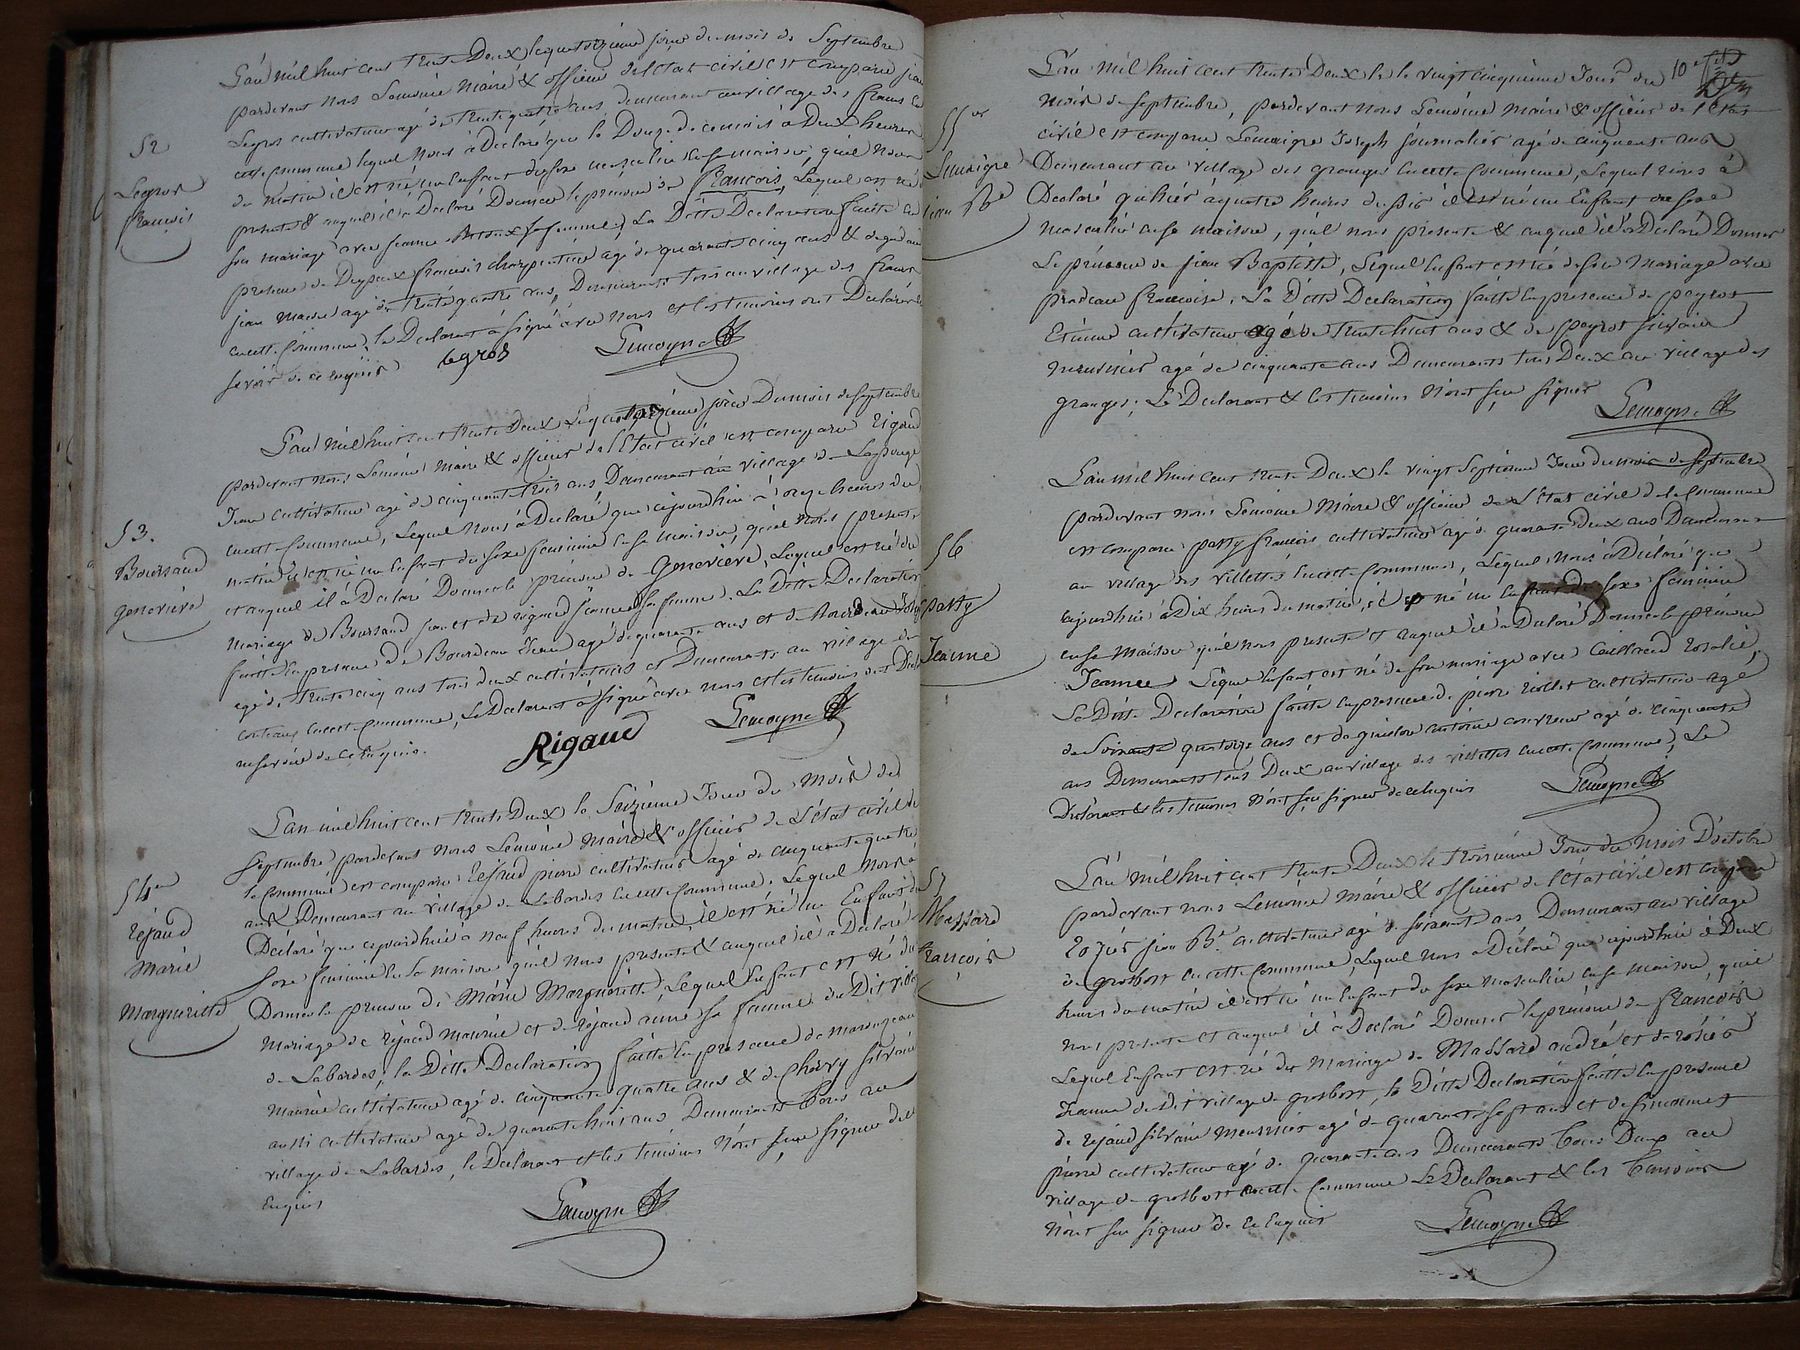 52
Legros
francois
L'an mil huit cent trente Deux le quatorzieme jour du mois de Septembre
pardevant nous Lemoine Maire & officier de l'etat civil est comparu jean
Legros cultivateur agé de trente quatre ans demeurant au village des
cette commune lequel nous à Declaré que le Douze de ce mois à Deux heures
du matin il est né un enfant du sexe masculin en sa maison, qu'il nous
presente & auquel il à Declaré Donner le prénom de francois, Lequel est né de
son mariage avec jeanne sa femme, La Ditte Declaration faitte en
presence de francois charpentier agé de quarante cinq ans & de
jean agé de trente quatre ans, Demeurants tous au village des
en cette commune, le Declarant à signé avec nous et les temoins ont Declaré ne
savoir de ce enquis
Legros Lemoyne
53.
Boursaud
genevieve
L'an mil huit cent trente Deux Le quatorzieme jour Du mois de septembre
pardevant nous Lemoine Maire & officier de l'Etat civil est comparu Rigaud
Jean cultivateur agé de cinquante trois ans Demeurant au village de Lapouge
en cette commune, Lequel nous à Declaré que aujourdhui à onze heures du
matin il est né un Enfant du sexe feminin en sa maison, qu'il nous presente
et auquel il à Declaré Donner le prénom de Genevieve, Lequel est né du
mariage de Boursaud et de rigaud jeanne sa femme. La Ditte Declaration
faitte en presence de Bourdeau Jean agé de quarante ans et de Bourdeau
agé de trente cinq ans tous deux cultivateurs et Demeurants au village de
en cette commune, Le Declarant à signé avec nous et les temoins ont
ne savoir de ce Enquis.
Rigaud Lemoyne
54
réjaud
Marie
Marguerite
L'an mil huit cent trente Deux le Seizième Jour du mois de
Septembre pardevant nous Lemoine Maire & officier de L'état civil de
la commune est comparu réjaud pierre cultivateur agé de cinquante quatre
ans Demeurant au village de Labordes en cette commune. Lequel nous à
Declaré que aujourdhui à neuf heures du matin, il est né un Enfant du
sexe feminin en sa maison qu'il nous presente & auquel il à Declaré
Donner le prenom de Marie Marguerite, Lequel Enfant est né du
Mariage de réjaud maurice et de réjaud anne sa femme du Dit village
de Labordes, la Ditte Declaration faitte En presence de marouzeau
maurice cultivateur agé de cinquante quatre ans & de chevry silvain
aussi cultivateur agé de quarante huit ans Demeurants tous au
village de Labordes, le Declarant et les temoins n'ont sçu signer de ce
Enquis
Lemoyne
10
55
Lemaigre
jean Bte
L'an mil huit cent trente Deux le vingt cinquieme Jour du
mois de septembre, pardevant nous Lemoine maire & officier de l'etat
civil est comparu Lemaigre Joseph journalier agé de cinquante ans
Demeurant au village des granges en cette Commune, Lequel nous à
Declaré qu'hier à quatre heures du soir il est né un Enfant du sexe
masculin en sa maison, qu'il nous presente & auquel il à Declaré Donner
Le prénom de jean Baptiste, Lequel Enfant est né de son Mariage avec
pradeau francoise. La Ditte Declaration faitte En presence de peyrot
Etienne cultivateur agé de trente huit ans & de peyrot silvain
menuisier agé de cinquante ans Demeurants tous Deux au village des
granges; Le Declarant & les temoins N'ont sçu signer
Lemoyne
56
patty
Jeanne
L'an mil huit cent trente Deux le vingt Septieme Jour du mois de septembre
pardevant nous Lemoine Maire & officier de L'état civil de la Commune
est comparu patty francois cultivateur agé de quarante deux ans Demeurant
au village des villettes en cette Commune, Lequel nous à Declaré que
aujourdhui à Dix heures du matin, il est né un Enfant du sexe feminin
en sa Maison qu'il nous presente et auquel il à Declaré Donner le prénom
Jeanne Lequel Enfant est né de son mariage avec Caillaud rosalie,
La Ditte Declaration faitte En presence de pierre cultivateur agé
de Soixante quatorze ans et de antoine couvreur agé de cinquante
ans Demeurants tous Deux au village des villettes en cette Commune, Le
Declarant & les temoins N'ont sçu signer de ce Enquis
Lemoyne
57
Massard
francois
L'an mil huit cent trente Deux le troisième Jour du mois D'octobre
pardevant nous Lemoine Maire & officier de l'état civil est comparu
rozier jean Bte cultivateur agé de soixante ans Demeurant au village
de grosbost en cette Commune, Lequel nous à Déclaré que aujourdhui à Deux
heures du matin il est né un Enfant du sexe masculin en sa maison, qu'il
nous presente et auquel il à Declaré Donner le prenom de francois,
Lequel Enfant est né du Mariage de Massard andré et de rozier
Jeanne du Dit village de grosbost, la Ditte Declaration faitte En presence
de rejaud silvain menuisier agé de quarante sept ans et de Simonnet
pierre cultivateur agé de quarante ans Demeurants tous Deux au
village de grosbost en cette Commune Le Declarant & les temoins
N'ont sçu signer de ce Enquis
Lemoyne